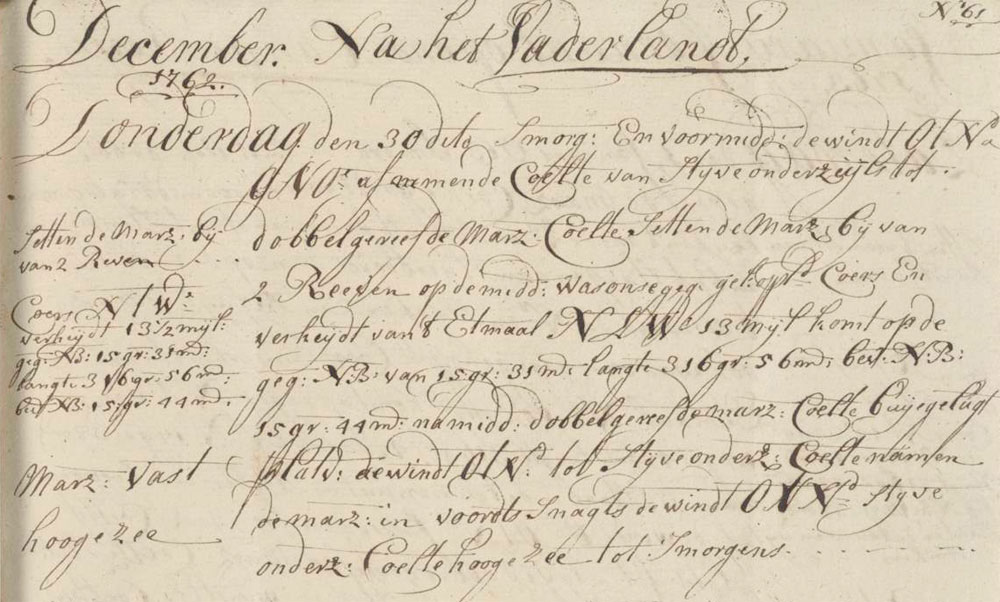 No. 61
December. Na het Vaderlandt.
1762.
Donderdag den 30 dito Smorg: En voormidd: de windt OtN a
ONO. afnemende Coelte van Styve onderzeijls tot
dobbelgereefde Marz: Coelte Setten de Marz: bij van
2 Reeven op de midd: was onse geg: gekop. Coers En
verheydt van 't Etmaal NtW 13 mijl komt op de
geg: NB: van 15 gr: 31 md: langte 316 gr: 56 md: bev: NB:
15 gr: 44 md: namidd: dobbelgereefde marz: Coelte buijege lugt
de windt OtN. tot Styve onderz: Coelte namen
de marz: in voordts Snagts de windt Styve
onderz: Coelte hooge zee tot Smorgens.
Setten de Marz: bij
van 2 Reven
Coers NtW.
verheydt 13 1/2 mijl:
geg: NB: 15 gr: 31 md:
langte 316 gr: 56 md:
bev: NB: 15 gr: 44 md:
Marz: vast
hooge zee